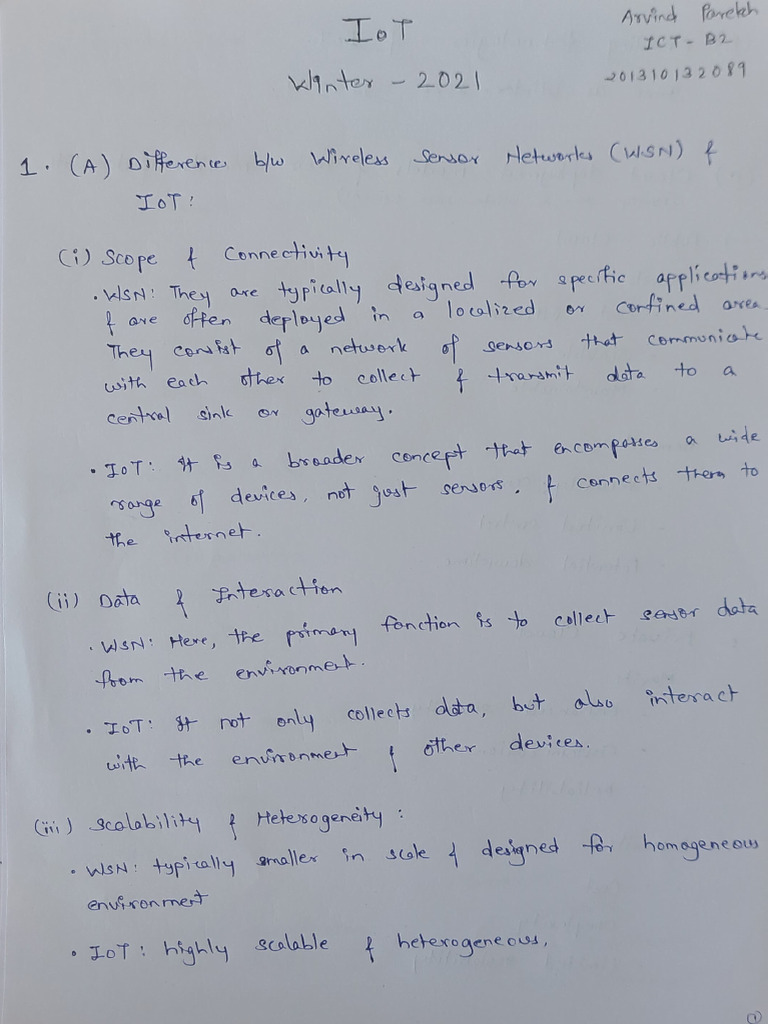 IoT
Arvind Parekh
ICT - B2
Winter - 2021
201310132089
1. (A) Difference b/w Wireless Sensor Networks (WSN) &
IoT:
(i) Scope & Connectivity
• WSN: They are typically designed for specific applications
& are often deployed in a localized or confined area.
They consist of a network of sensors that communicate
with each other to collect & transmit data to a
central sink or gateway.
• IoT: It is a broader concept that encompasses a wide
range of devices, not just sensors, & connects them to
the internet.
(ii) Data & Interaction
• WSN: Here, the primary function is to collect sensor data
from the environment.
• IoT: It not only collects data, but also interact
with the environment & other devices.
(iii) Scalability & Heterogeneity :
• WSN: typically smaller in scale & designed for homogeneous
environment
• IoT : highly scalable & heterogeneous,
1